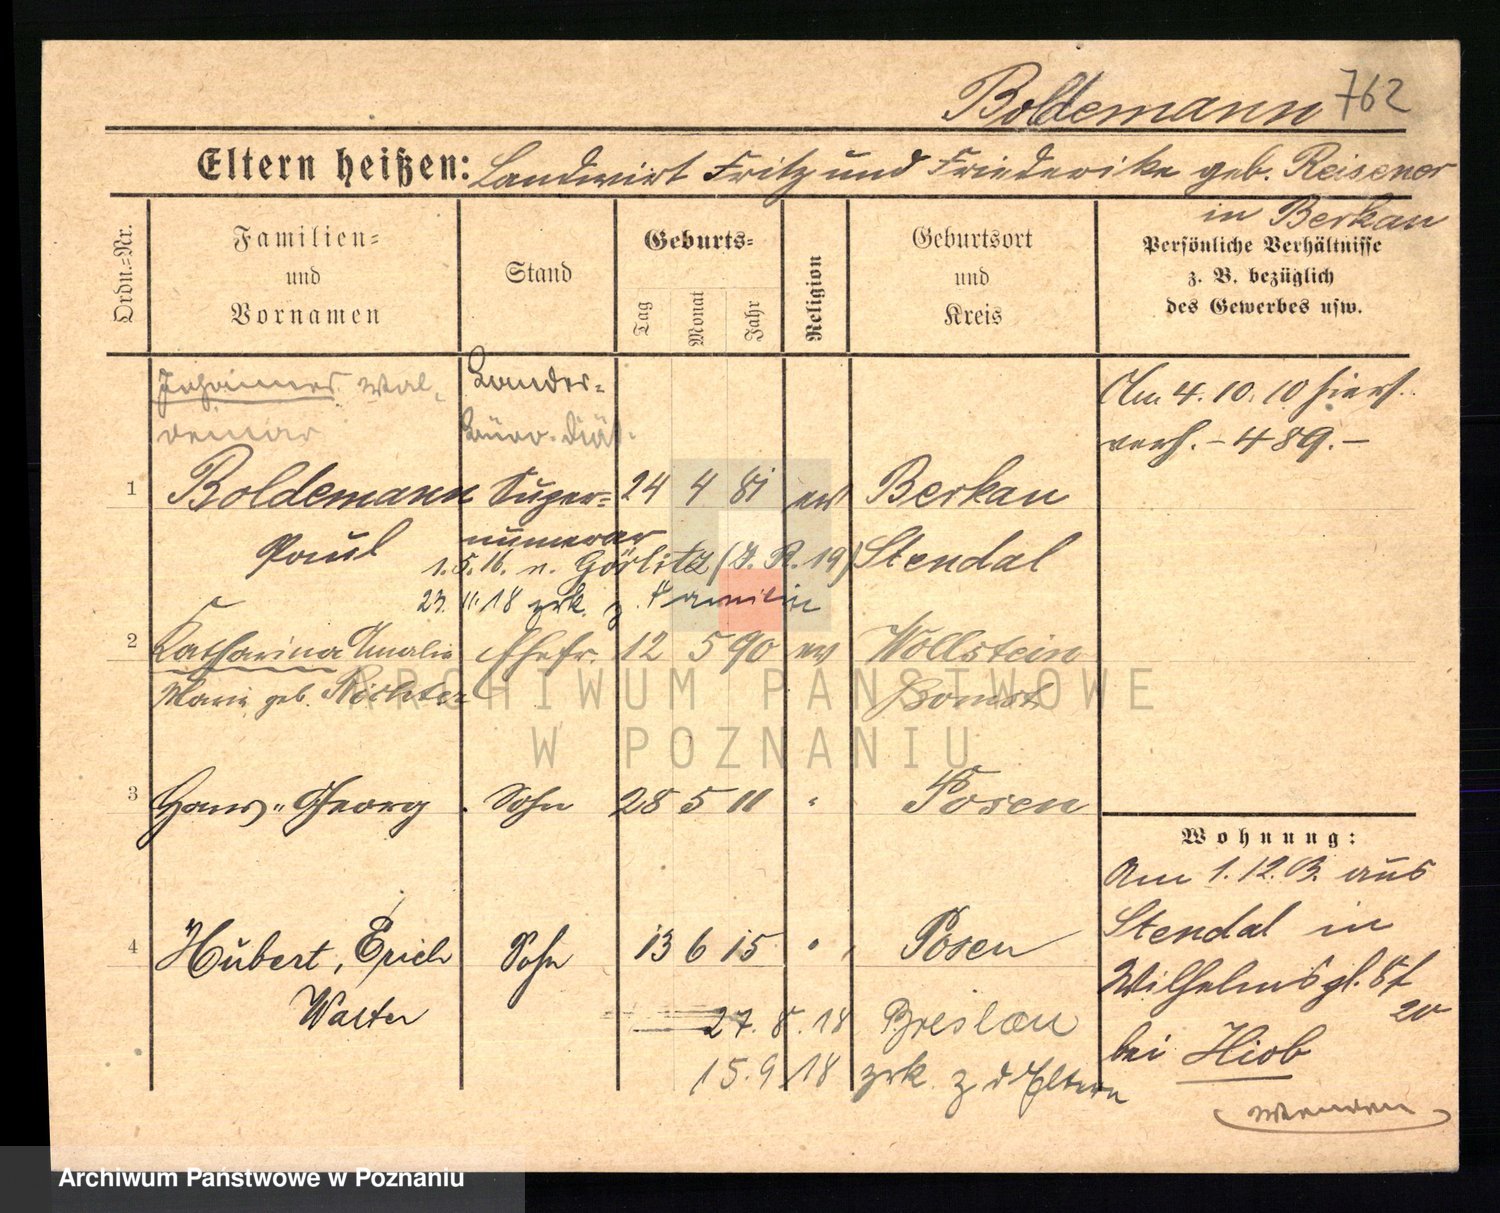 Boldemann 762
Eltern heißen: Landwirt Fritz und Friederike geb. Reisener
in Berkau
Ordn.-Nr.
Familien-
und
Vornamen
Stand
Geburts-
Tag
Monat
Jahr
Religion
Geburtsort
und
Kreis
Persönliche Verhältnisse
z. B. bezüglich
des Gewerbes usw.
Johannes Wal-
demar
Landes-
Büro-Diät.
Am 4. 10. 10 hiers.
verh. - 489. -
1 Boldemann Super- 24 4 81 ev Berkau
Paul numerar Stendal
1. 5. 16. n. Görlitz (J. R. 19)
27. 11. 18 zrk. z. Familie
2 Katharina Amalie Ehefr. 12 5 90 ev Wollstein
Marie geb. Bomst
3 Hans-Georg Sohn 28 5 11 " Posen
4 Hubert, Erich Sohn 13 6 15 " Posen
Walter
27. 8. 18 Breslau
15. 9. 18 zrk. z d Eltern
Wohnung:
Am 1. 12. 03. aus
Stendal in
Wilhelmspl. 8
20
bei Hiob
wenden
ARCHIWUM PAŃSTWOWE
W POZNANIU
Archiwum Państwowe w Poznaniu